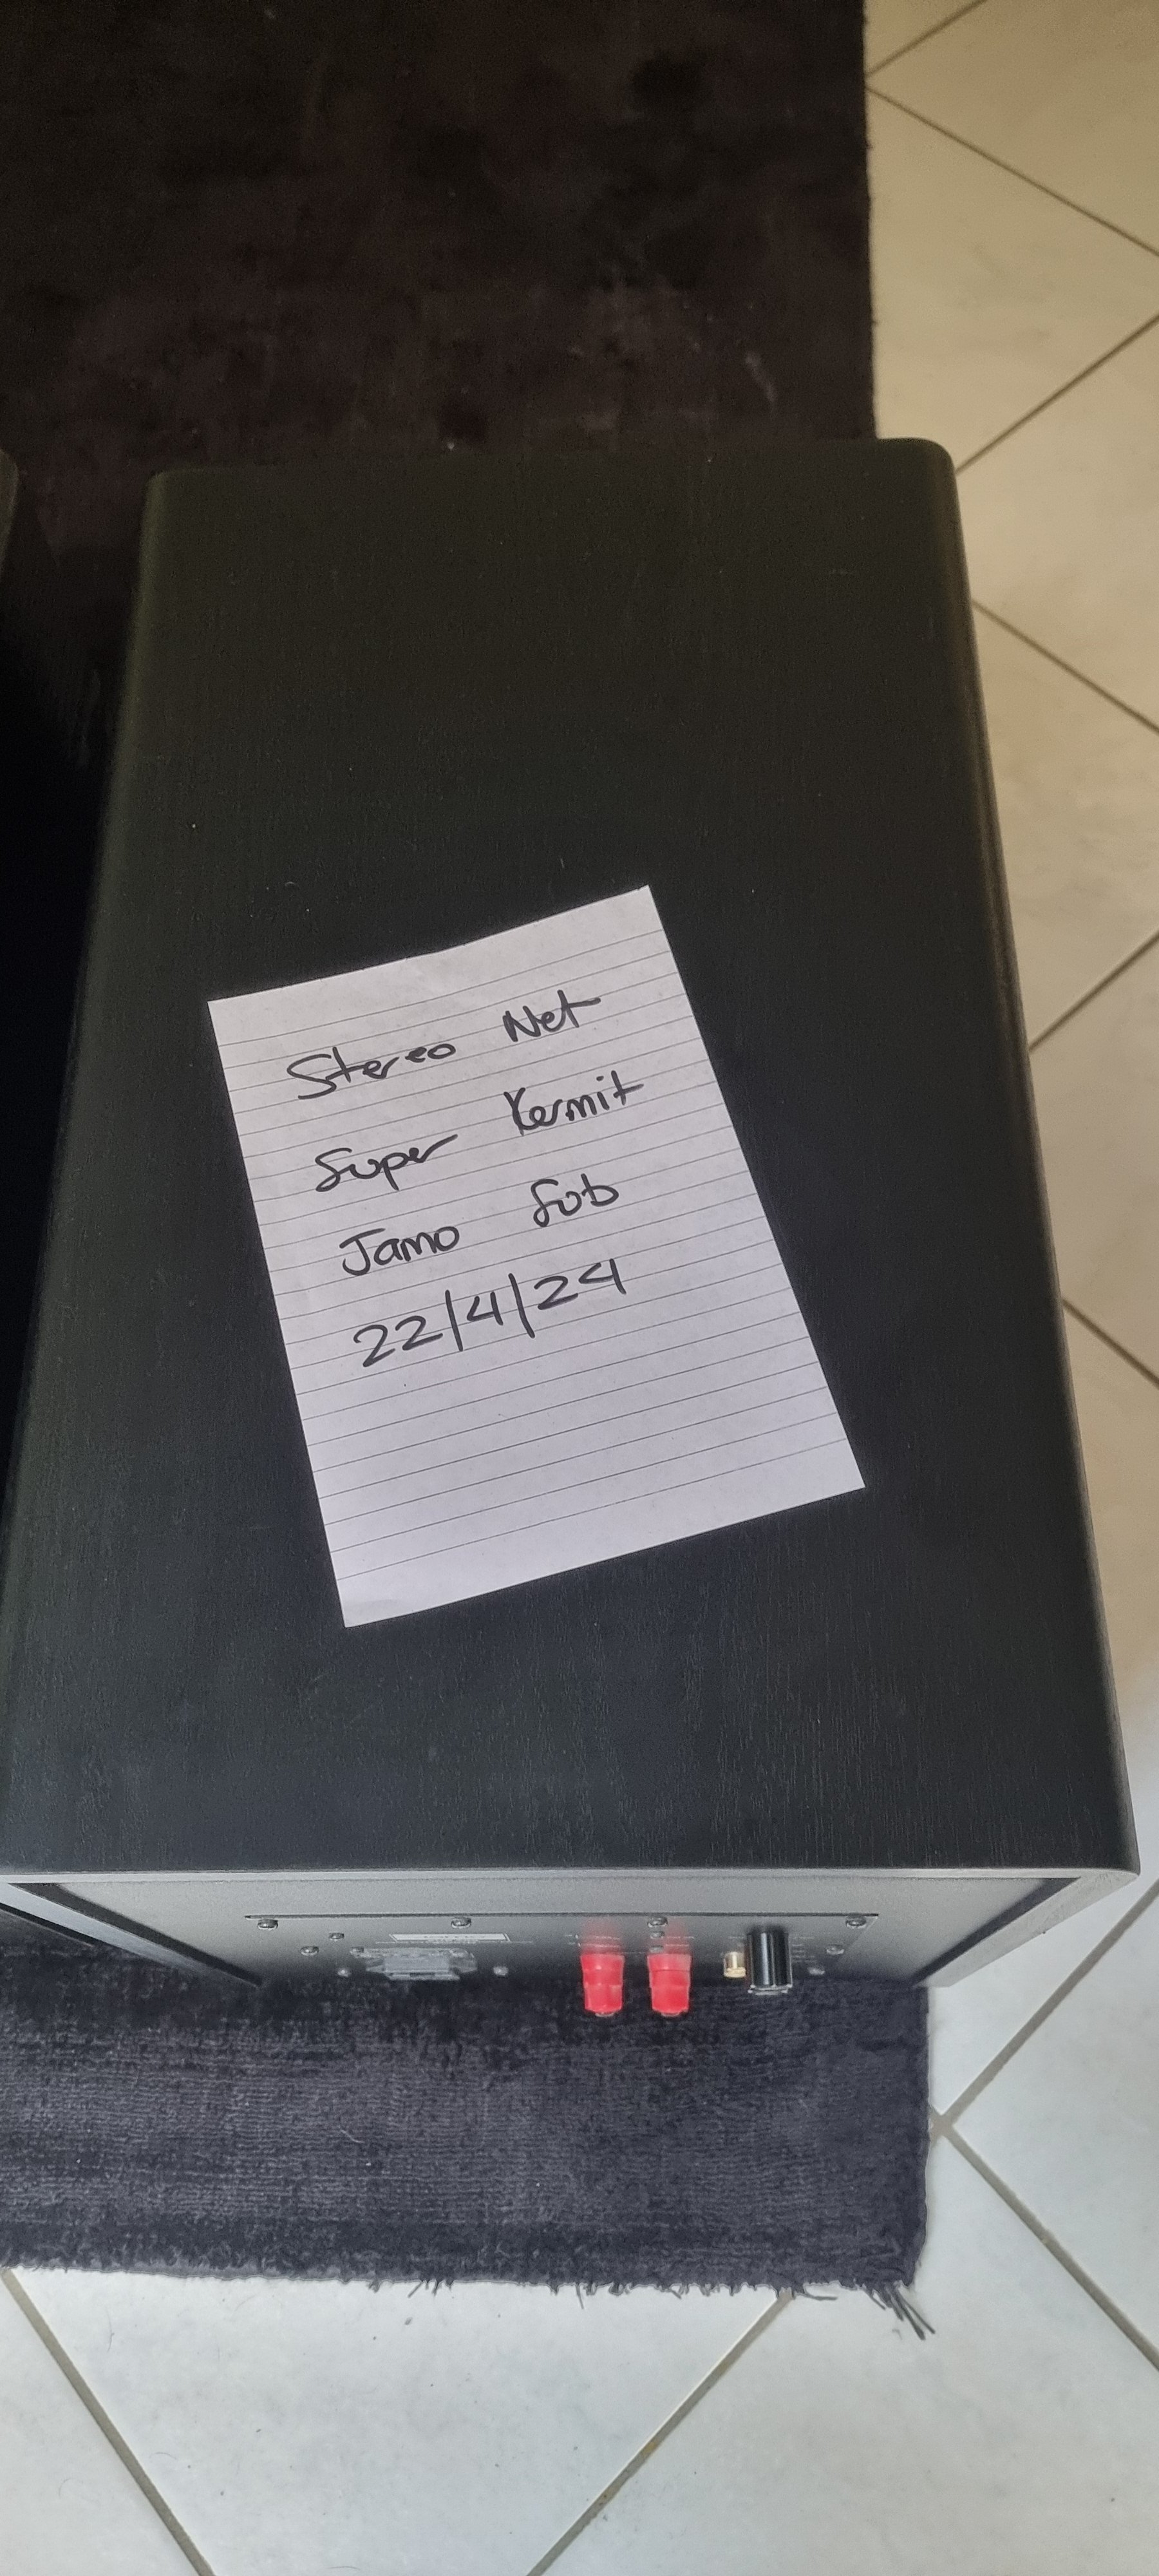 Stereo Net
Super Kermit
Jamo Sub
22/4/24